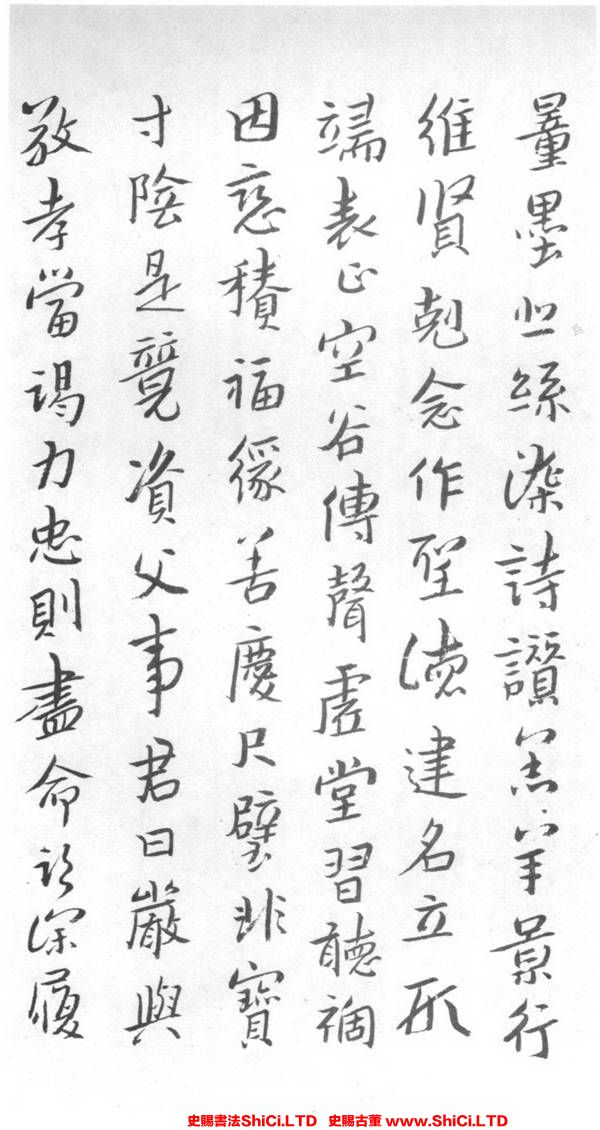 量墨悲絲染詩讚羔羊景行
維賢剋念作聖德建名立形
端表正空谷傳聲虛堂習聽禍
因惡積福緣善慶尺璧非寶
寸陰是競資父事君曰嚴與
敬孝當竭力忠則盡命臨深履
史賜書法ShiCi.LTD 史賜古董 www.ShiCi.LTD